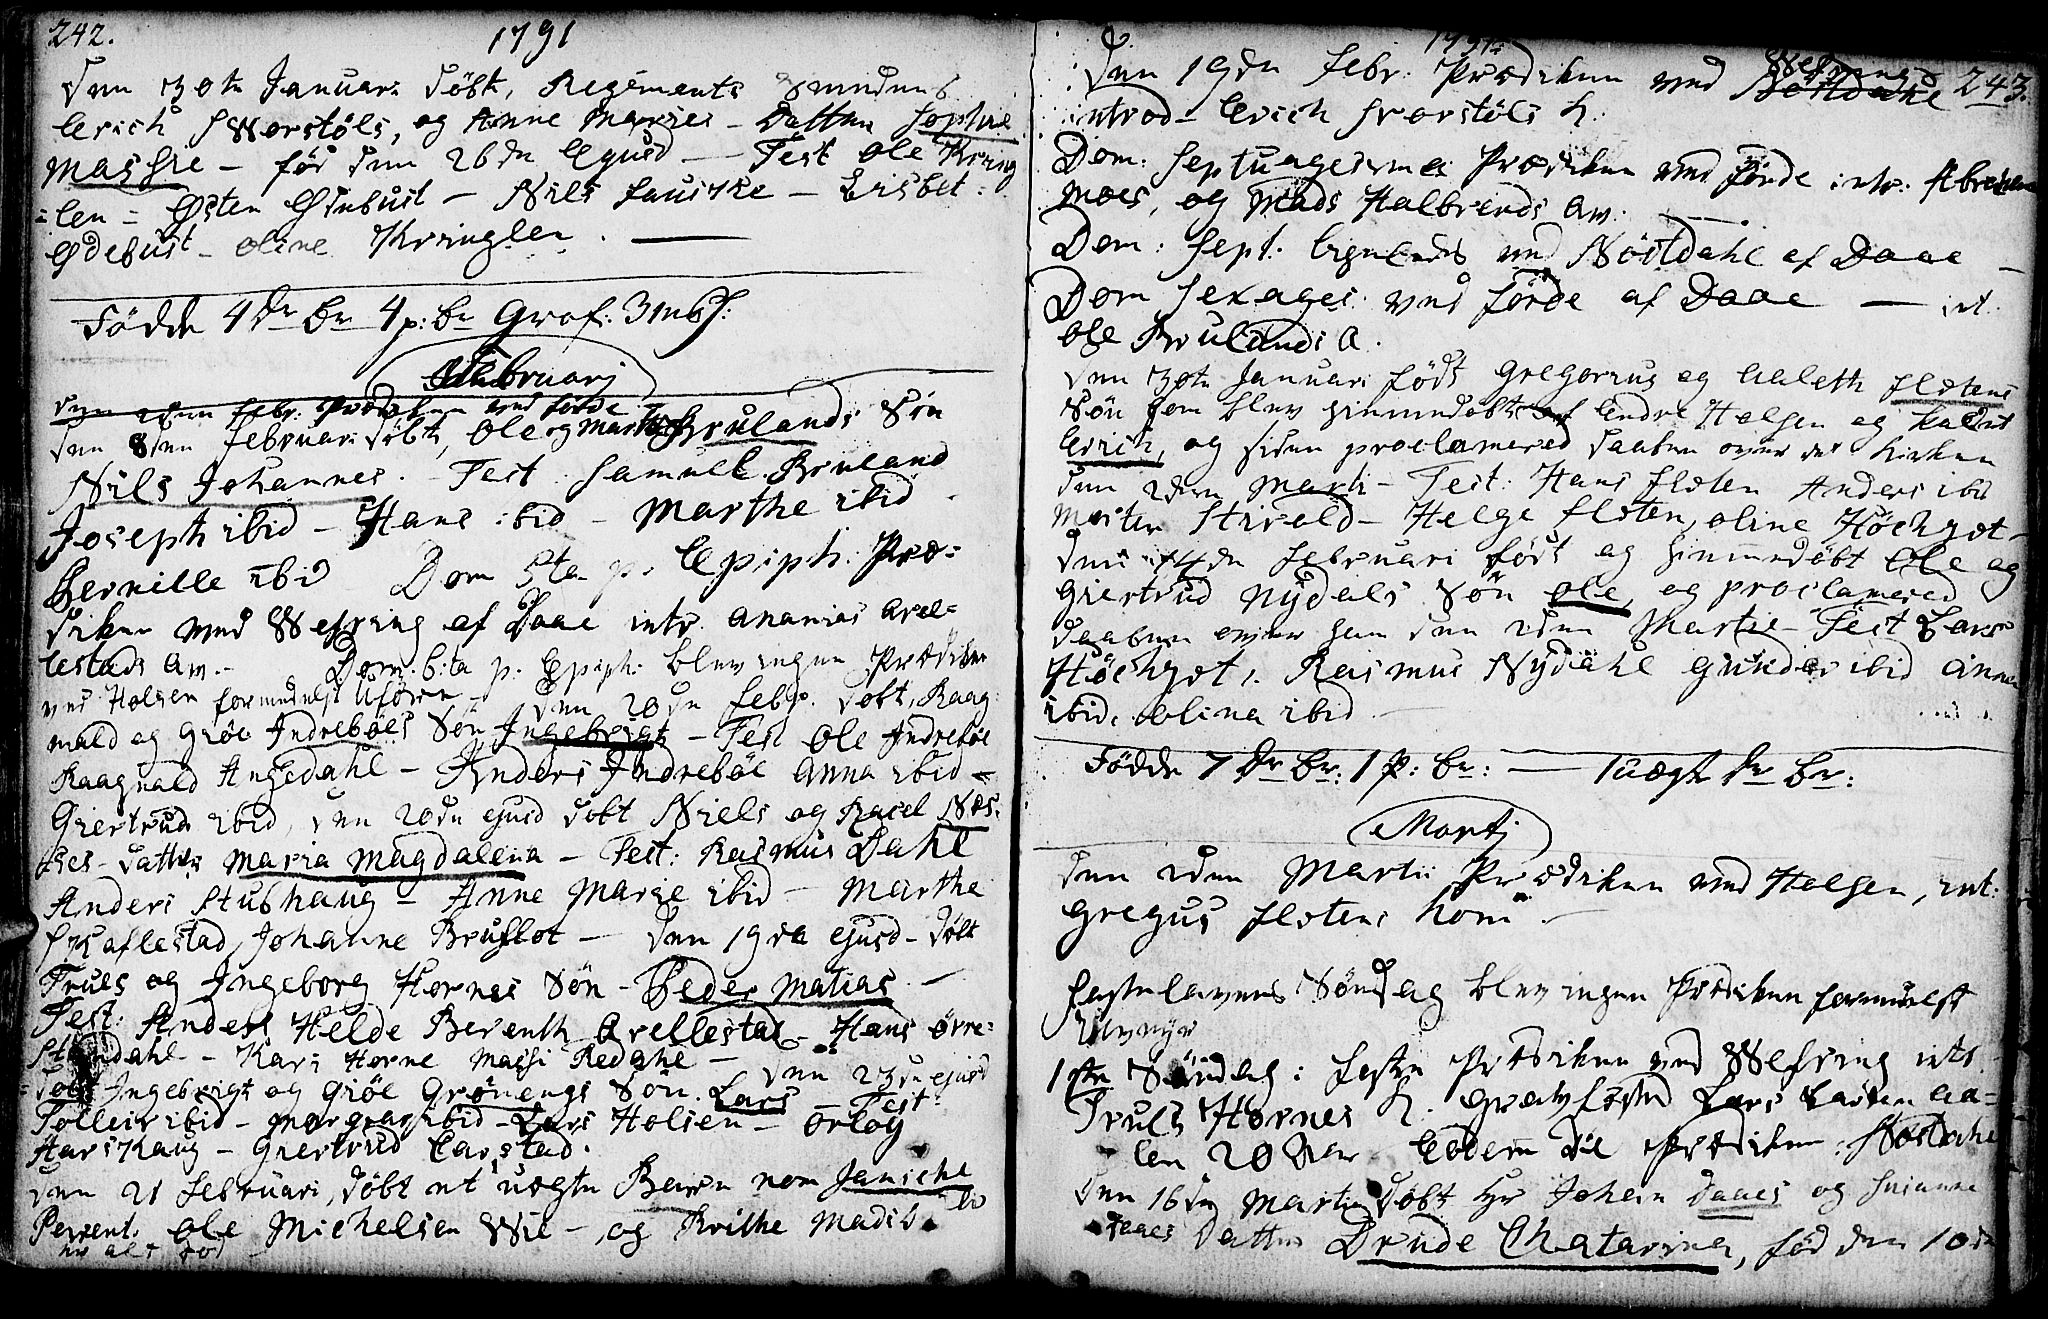 242.
1791
Den 30te Januari döbt, Regiments
Erich Sworstöls, og Anne Maries - Datter Sophie
Massie - föd den 26de Ejusd — Test Ole Kring
=len = Östen Ödebust - Nils Lauiske - Lisbet
Ödebust - oline Kringlen. —
Födde 4 Dr Br 4 p: br Graf:
Februarj
den 2den febr. Prædiken ved förde
den 8den februari döbt, Ole og Marthe Brulands Sön
Nils Johannes. - Test Samuel Bruland
Joseph ibid - Hans ibid - Marthe ibid
Pernille ibid Dom 5ta p. Epiph: Præ=
diken ved Wefring af Daae intr. Ananias Arel=
lestads Qv. - Dom. 6:ta p. Epiph: blev ingen Prædiken
ved Holsen formedelst Uföre - Den 20de febr. döbt, Raag
nald og Giöe Indreböes Sön Ingebrigt - Test Ole Indreböe
Raagnald Angedahl - Anders Indreböe Anna ibid -
Giertrud ibid, den 20de ejusd döbt Niels og Racel Næs.
ses - datter Maria Magdalena - Test: Rasmus Dahl
Anders Stubhaug - Anne Marie ibid - Marthe
aflestad, Johanne Bruflot — den 19de ejusd - döbt
Trues og Ingeborg Hornes Sön - Peder Matias. -
Test: Anders Helde Berenth Arellestad - Hans övre=
dahl - Kari Horne Massi Redahl - den 23de ejusd
=döbt Ingebrigt og Giöe Grönengs Sön. Lars - Test
Tolleiv ibid - Margrete ibid - Lars Holsen - Orlög
Haarskaug - Giertrud Carstad.
den 21 februari, döbt et uægte Barn nom Janiche
Parent. Ole Michelsen Wie -, og Brithe Madsd.
föd
1791.
243.
Den 19de febr. Prædiken ved Wefring
introd - Erich Svorstöls h.
Dom: Septuagesima Prædiken ved Förde intr. Abraham
moes, og Mads Halbrends Qv. —
Dom: Sept. ved Nöstdahl af Daae -
Dom Sexages: ved förde af Daae — int.
Ole Brulands Q.
Den 30te Januari födt Gregorius og Aaleth flotens
Sön som blev hiemedöbt af Endre Holsen og kaldet
Erich, og siden proclamered daaben over det i kirken
den 2den Marti - Test: Hans floten Anders ibid
Morten Stivold - Helge floten, oline Höchgot -
den 14de februari födt og hiemedöbt Ole og
Giertrud Nydals Sön Ole, og proclamered
daaben over ham den 2den Martie - Test Lars
Höchgot, Rasmus Nydahl Gunder ibid Anna
ibid. Olina ibid
Födde 7 Dr Br: 1 P: br: — 1 uægte Dr Br:
Martj
Den 2den Marti Prædiken ved Holsen, int.
Gregus flotens kone -
Fastelavens Söndag blev ingen Prædiken formedelst
Uveyr
1ste Söndag i faste Prædiken ved Wefring intr.
Truls Hornes h.
=len 20 Eodem Die Prædiken Nöstdahl
Den 16de Marti döbt Hr Johan Daaes og Susanna
Daaes datter Drude Chatarina, föd den 10de